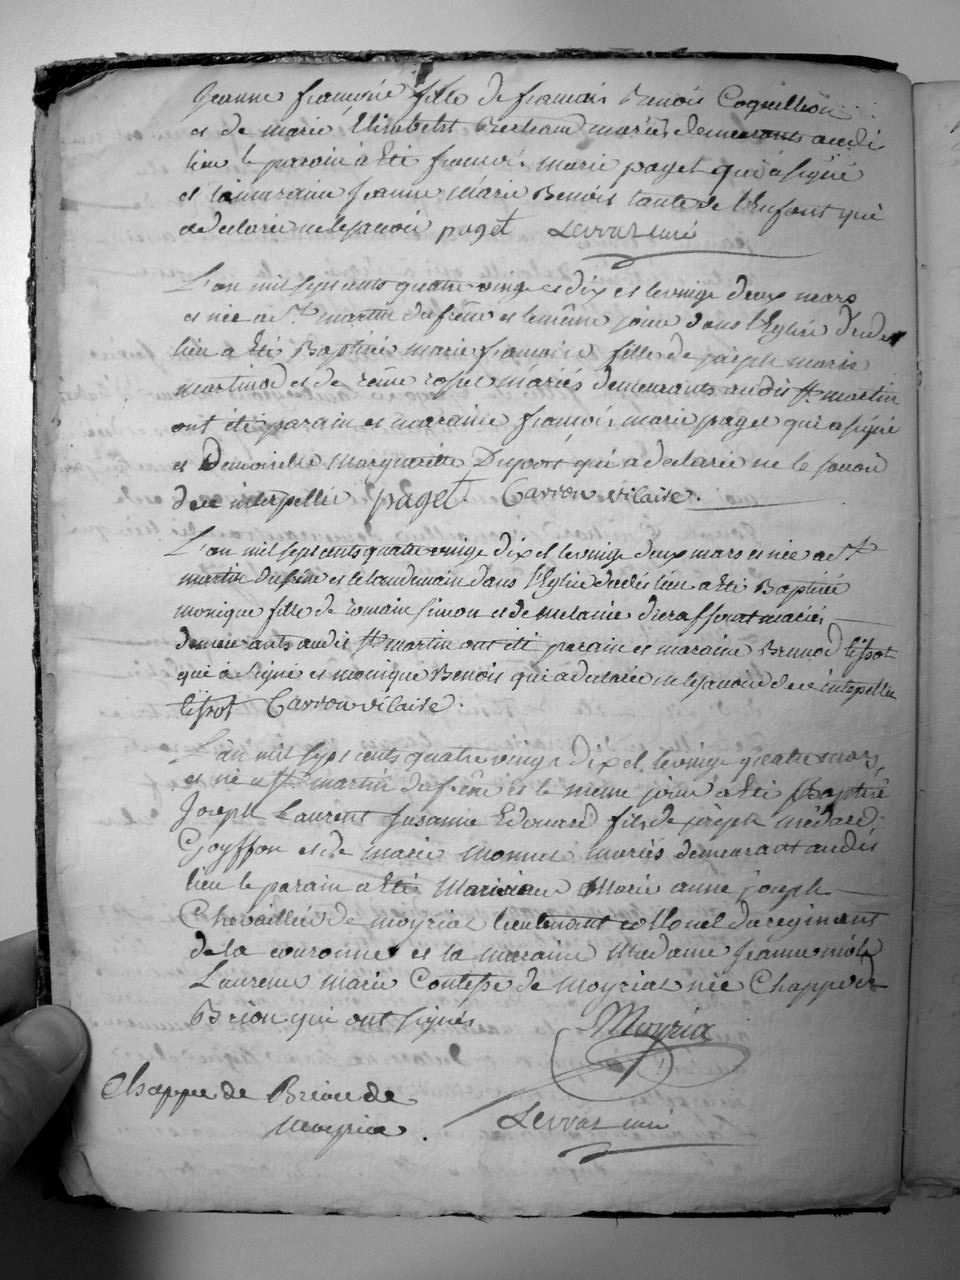 Jeanne françoise fille de françois Benoit Coquillion
et de marie Elisabeth Bertrand mariés demeurants audit
lieu le parain à été françois marie paget qui à signé
et la maraine Jeanne Marie Benoit tante de l'Enfant qui
a declarée ne le savoir paget Lervaz curé
L'an mil sept cents quatre vingt et dix et le vingt deux mars
est née a St martin du frêne et le même jour dans l'Eglise dudit
lieu a été Baptisée marie françoise fille de joseph marie
martinod et de reine rosset mariés demeurants audit St martin
ont été parain et maraine françois marie paget qui a signé
et Demoiselle marguerite Dupont qui a declarée ne le savoir
de ce interpellée paget. Carron vicaire.
L'an mil sept cents quatre vingt dix et le vingt deux mars est née a St
martin Dufrêne et le lendemain dans l'Eglise dudit lieu a été Baptisée
monique fille de romain Simon et de melanie mariés
demeurants audit St martin ont été parain et maraine Brunod
qui à signé et monique Benoit qui a declarée ne le savoir de ce interpellée
Carron vicaire.
L'an mil sept cents quatre vingt dix et le vingt quatre mars
est né a St martin dufrêne et le même jour a été Baptisé
Joseph Laurent Susanne Edouard fils de joseph médard
Goyffon et de marie Monnet mariés demeurant audit
lieu le parain a été Marie anne joseph
Chevaillier de moyriat lieutenant collonel du regiment
de la couronne et la maraine Madame Jeanne
Laurence marie Contesse de Moyriat née Chappe de
Brion qui ont signés
Moyria
Chappe de Brion de
Moyria.
Lervaz curé